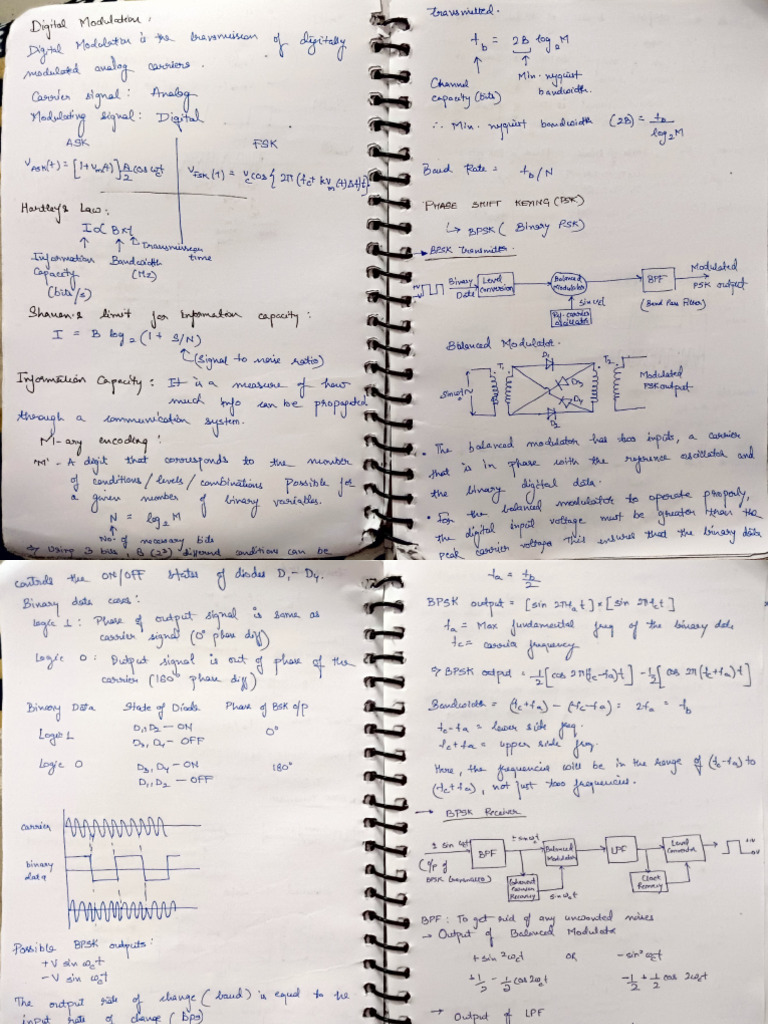 Digital Modulation.
Digital Modulation is the transmission of digitally
modulated analog carriers.
Carrier signal: Analog
Modulating signal: Digital
ASK
V_ASK(t) = [1+Vm(t)] A/2 cos ωct
FSK
V_FSK(t) = Vc cos{2π(fc + kVm(t)Δf)t}
Hartley's Law:
I ∝ B×t
Information Capacity (bits/s)
Bandwidth (Hz)
Transmission time
Shannon's limit for Information capacity:
I = B log₂(1 + S/N)
(signal to noise ratio)
Information Capacity: It is a measure of how
much info can be propagated
through a communication system.
M-ary encoding:
'M' - A digit that corresponds to the number
of conditions/levels/combinations possible for
a given number of binary variables.
N = log₂M
No. of necessary bits
Using 3 bits, 8 (2³) different conditions can be
transmitted.
f_b = 2B log₂M
Channel capacity (bits)
Min. nyquist bandwidth.
∴ Min. nyquist bandwidth (2B) = f_b / log₂M
Baud Rate = f_b/N
PHASE SHIFT KEYING (PSK)
↳ BPSK (Binary PSK)
→ BPSK Transmitter.
Binary Data
Level Conversion
Balanced Modulator
BPF
Modulated PSK output
(Band Pass Filter)
sin ωct
Ref. carrier oscillator
Balanced Modulator.
sin ωct
T₁
D₁
D₃
D₄
D₂
T₂
Modulated PSK output
• The balanced modulator has two inputs, a carrier
that is in phase with the reference oscillator and
the binary digital data.
• For the balanced modulator to operate properly,
the digital input voltage must be greater than the
peak carrier voltage. This ensures that the binary data
controls the ON/OFF states of diodes D₁-D₄.
Binary data cases:
Logic 1: Phase of output signal is same as
carrier signal (0° phase diff)
Logic 0: Output signal is out of phase of the
carrier (180° phase diff)
Binary Data State of Diode Phase of BSK o/p
Logic 1 D₁,D₂ - ON 0°
D₃,D₄ - OFF
Logic 0 D₃,D₄ - ON 180°
D₁,D₂ - OFF
carrier
binary data
Possible BPSK outputs:
+V sin ωct
-V sin ωct
The output rate of change (baud) is equal to the
input rate of change (bps)
fa = fb/2
BPSK output = [sin 2πfat] × [sin 2πfct]
fa = Max fundamental freq of the binary data
fc = carrier frequency
BPSK output = 1/2[cos 2π(fc-fa)t] - 1/2[cos 2π(fc+fa)t]
Bandwidth = (fc+fa) - (fc-fa) = 2fa = fb
fc-fa = lower side freq.
fc+fa = upper side freq.
Here, the frequencies will be in the range of (fc-fa) to
(fc+fa), not just two frequencies.
→ BPSK Receiver
± sin ωct
(O/p of BPSK transmitter)
BPF
± sin ωct
Balanced Modulator
LPF
Level Converter
+V
0V
Coherent Carrier Recovery
sin ωct
Clock Recovery
BPF: To get rid of any unwanted noises
→ Output of Balanced Modulator
+ sin²ωct OR - sin²ωct
+1/2 - 1/2 cos 2ωct -1/2 + 1/2 cos 2ωct
→ Output of LPF